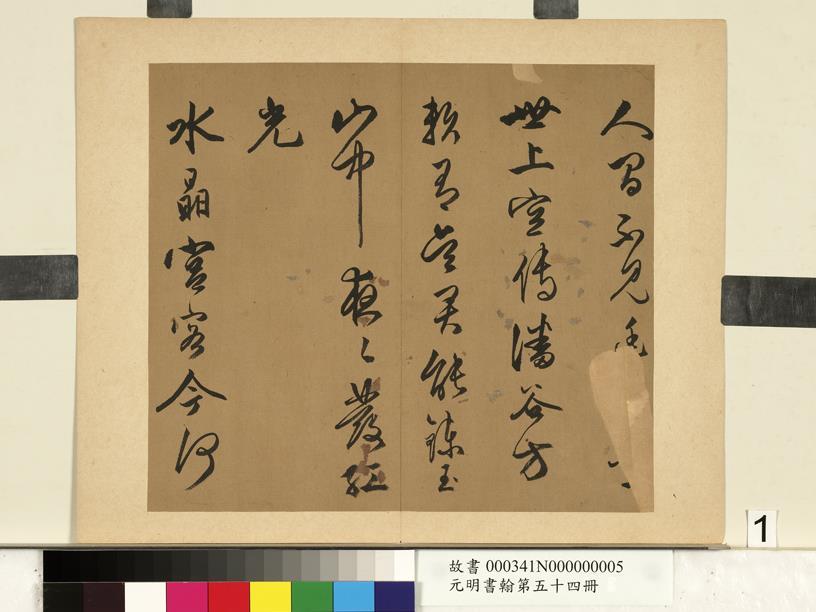 人間不見
世上空傳潘谷方
賴有能鍊玉
山中夜〻發紅
光
水晶宮客今何
1
故書 000341N000000005
元明書翰第五十四冊